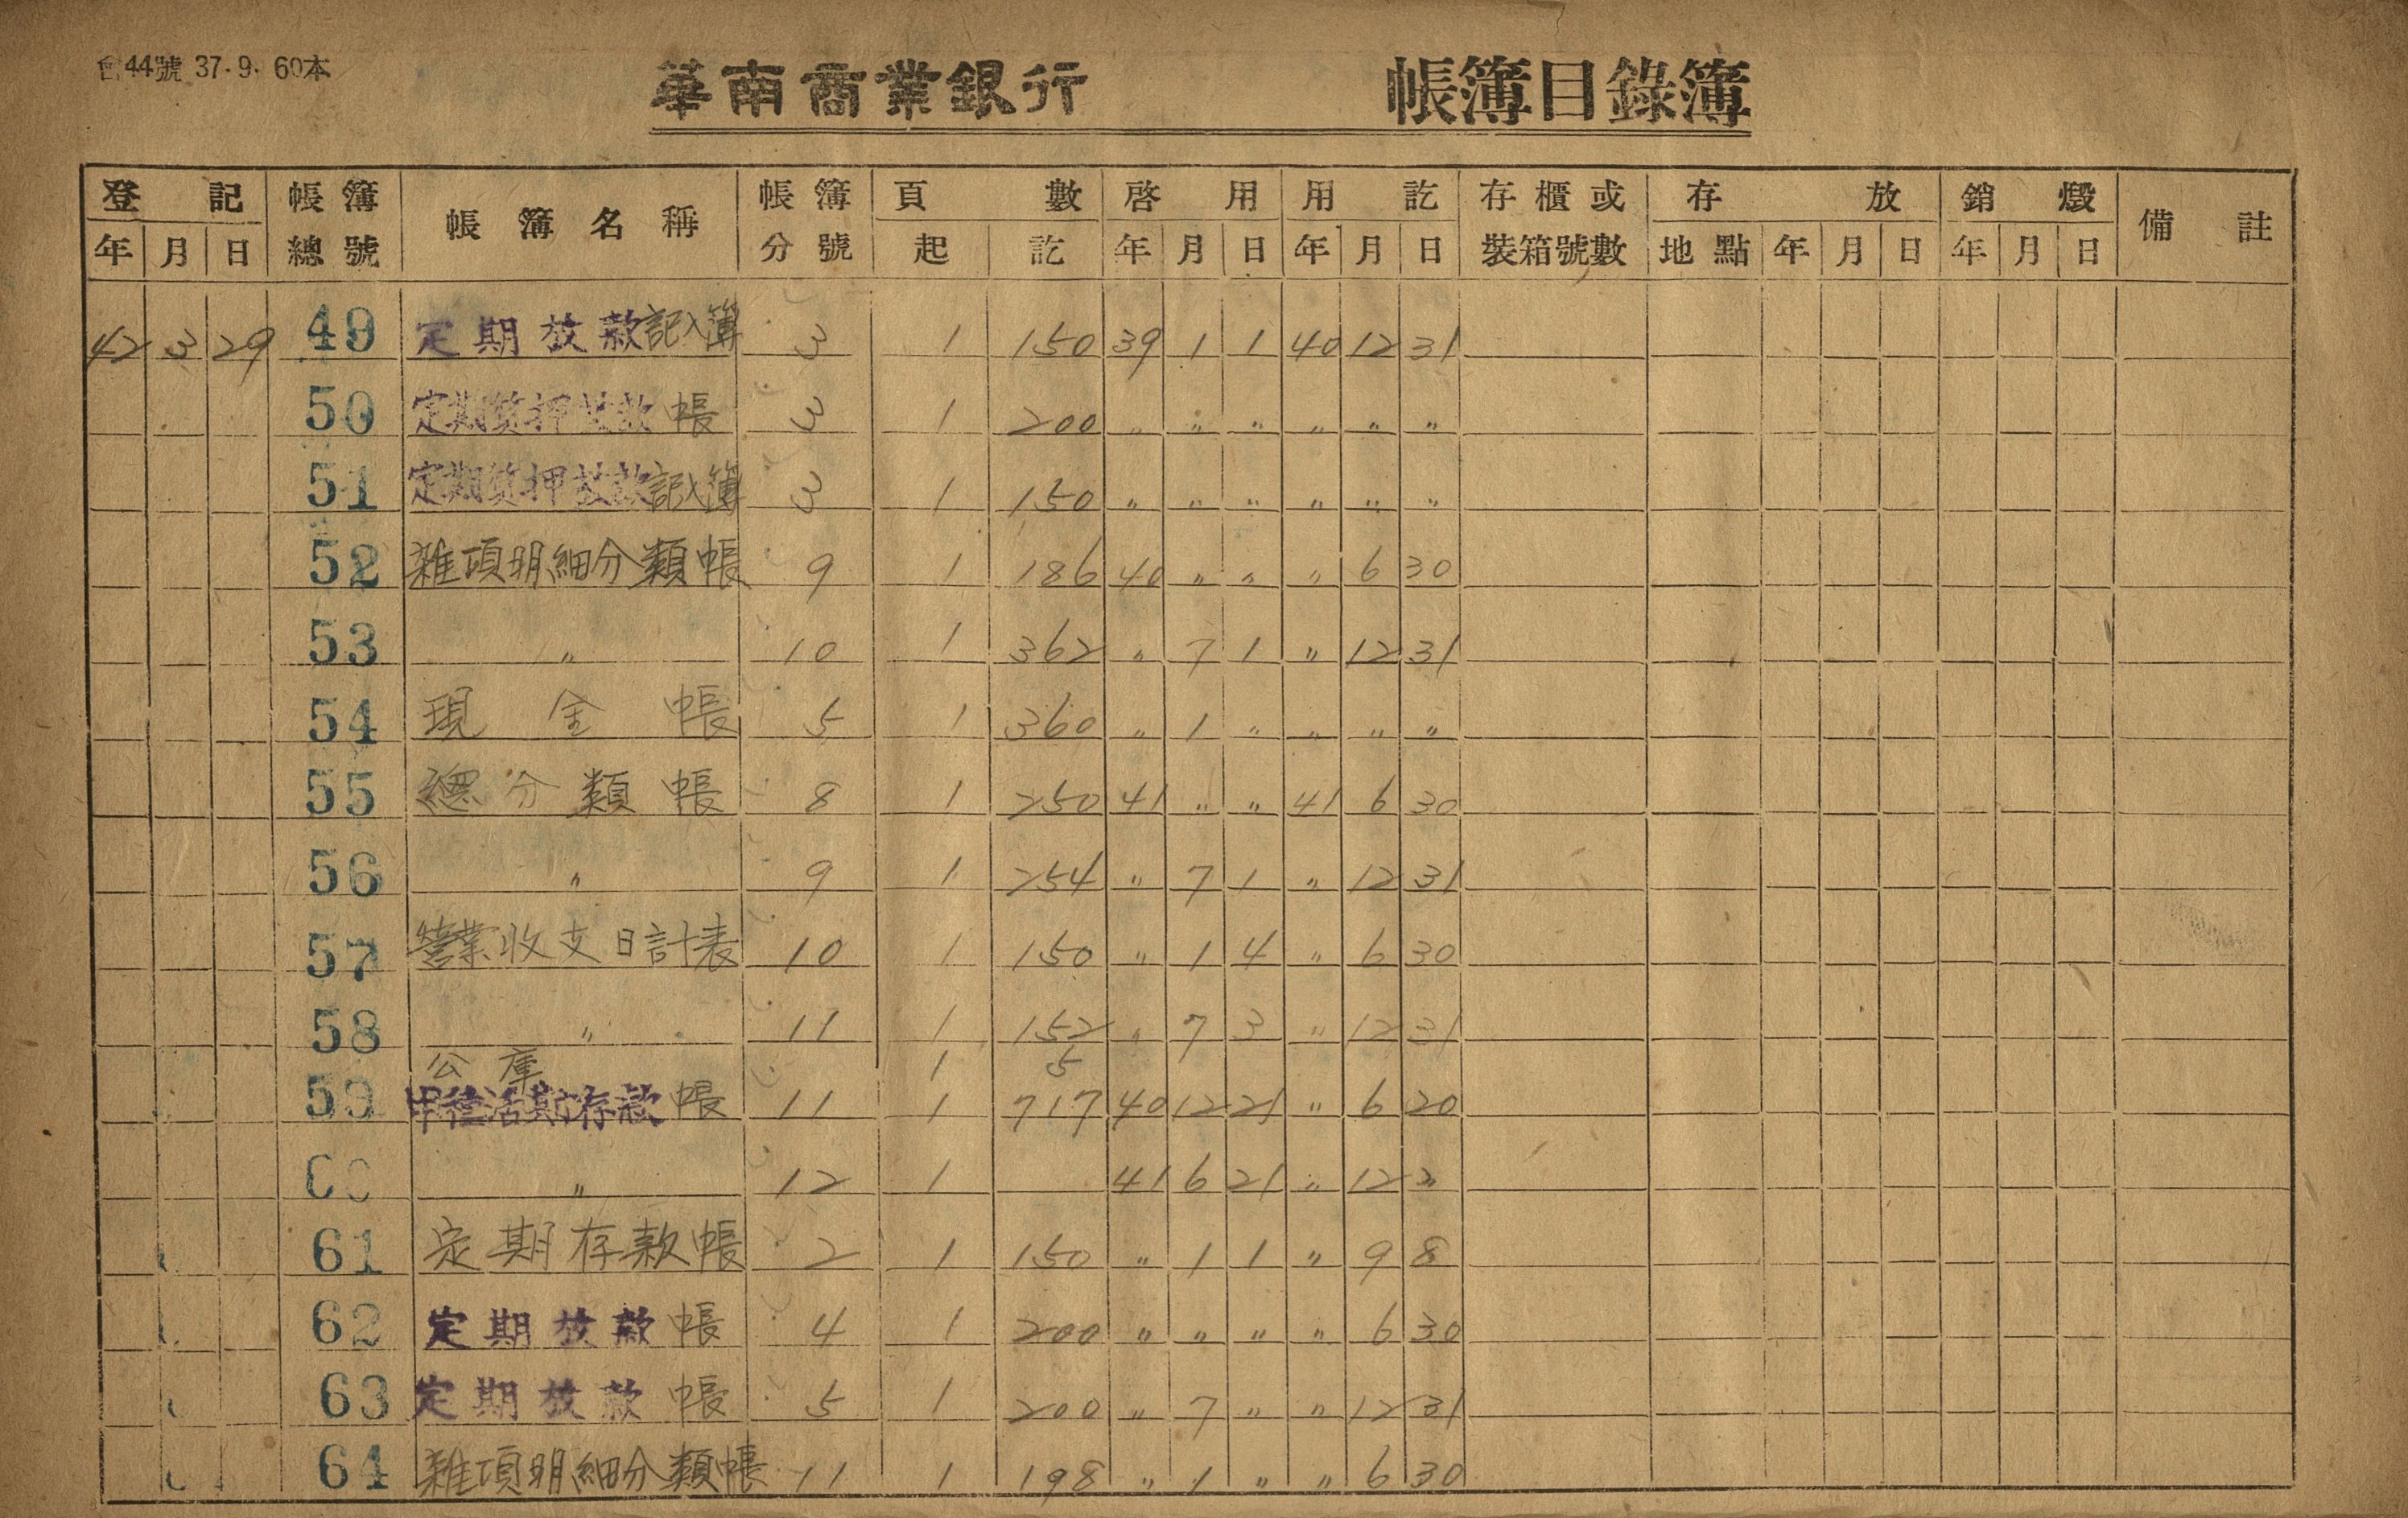 會44號 37.9. 60本
華南商業銀行 帳簿目錄簿
登記 帳簿總號 帳簿名稱 帳簿分號 頁數 啓用 用訖 存櫃或裝箱號數 存放 銷燬 備註
年 月 日 起 訖 年 月 日 年 月 日 地點 年 月 日 年 月 日
42 3 29 49 定期放款記入簿 3 1 150 39 1 1 40 12 31
50 定期質押放款帳 3 1 200 〃 〃 〃 〃 〃 〃
51 定期質押放款記入簿 3 1 150 〃 〃 〃 〃 〃 〃
52 雜項明細分類帳 9 1 186 40 〃 〃 〃 6 30
53 〃 10 1 362 〃 7 1 〃 12 31
54 現金帳 5 1 360 〃 1 〃 〃 〃 〃
55 總分類帳 8 1 250 41 〃 〃 41 6 30
56 〃 9 1 254 〃 7 1 〃 12 31
57 營業收支日計表 10 1 150 〃 1 4 〃 6 30
58 〃 11 1 152 〃 7 3 〃 12 31
公庫 1 5
59 甲種活期存款帳 11 1 717 40 12 21 〃 6 20
60 〃 12 1 41 6 21 〃 12 〃
61 定期存款帳 2 1 150 〃 1 1 〃 9 8
62 定期放款帳 4 1 200 〃 〃 〃 〃 6 30
63 定期放款帳 5 1 200 〃 7 〃 〃 12 31
64 雜項明細分類帳 11 1 198 〃 1 〃 〃 6 30